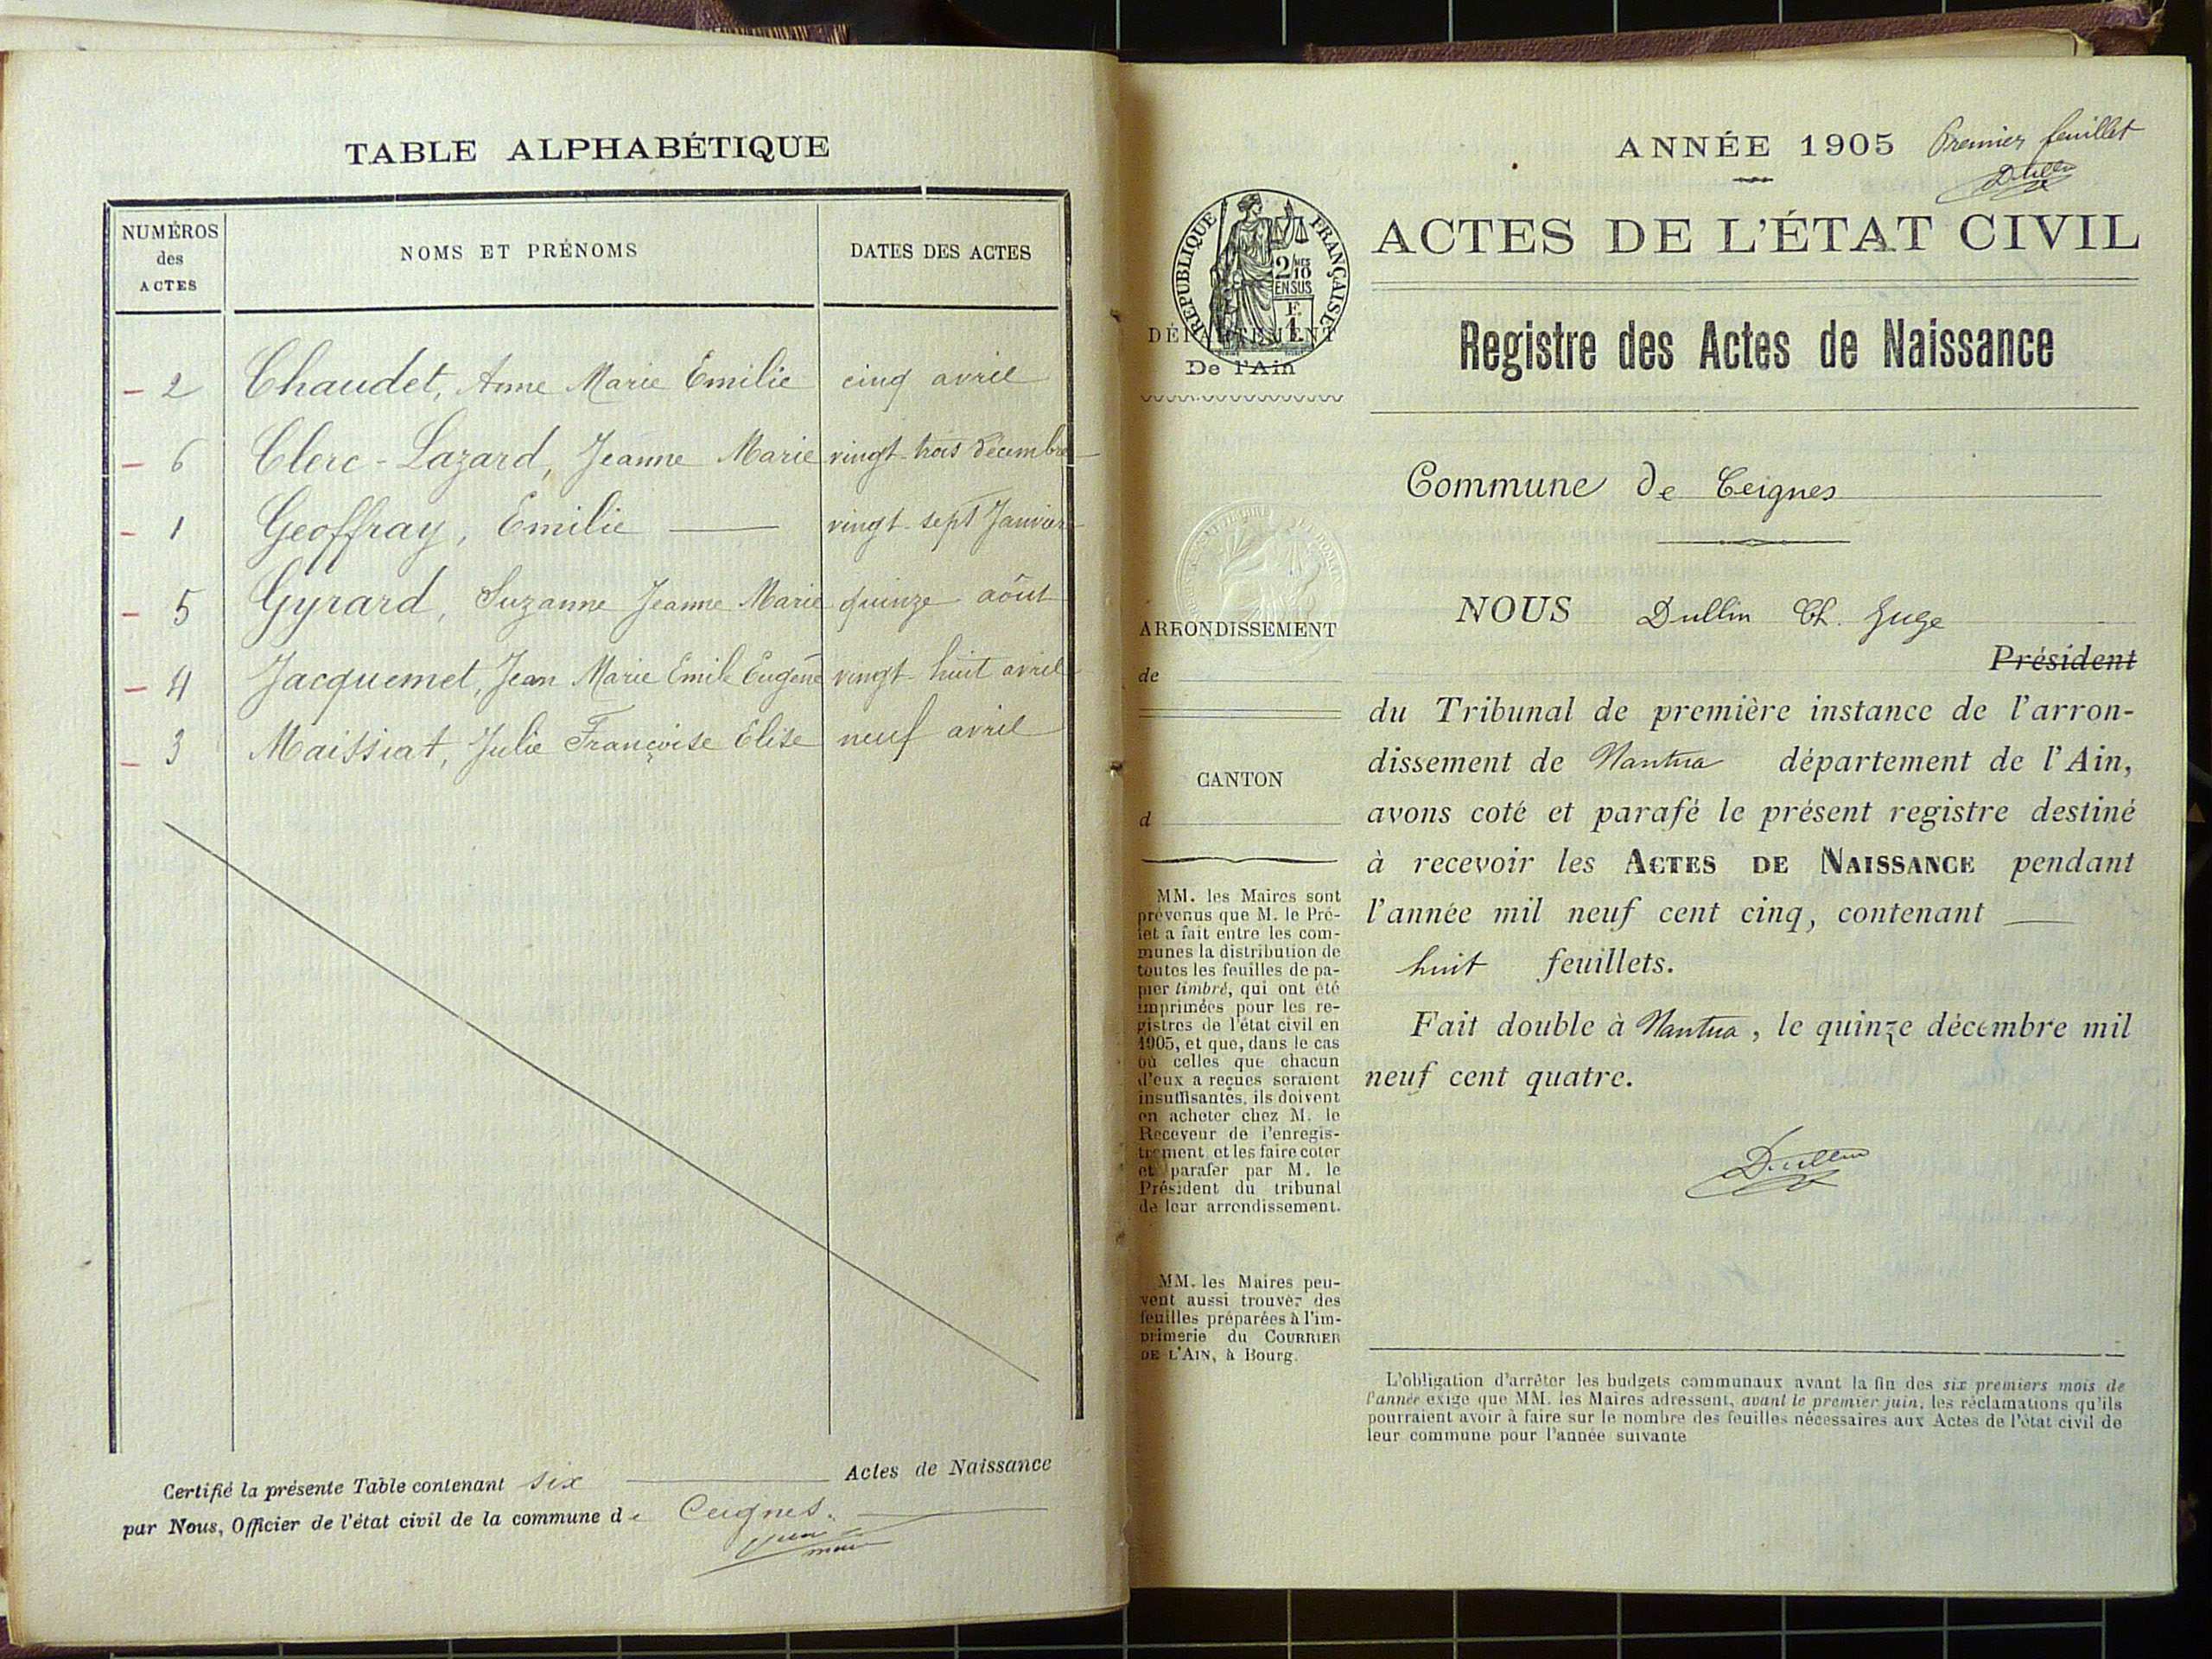 TABLE ALPHABÉTIQUE
NUMÉROS
des
ACTES
NOMS ET PRÉNOMS
DATES DES ACTES
2 Chaudet, Anne Marie Emilie cinq avril
6 Clerc-Lazard, Jeanne Marie vingt-trois décembre
1 Geoffray, Emilie vingt-sept Janvier
5 Gyrard, Suzanne Jeanne Marie quinze août
4 Jacquemet, Jean Marie Emile Eugène vingt-huit avril
3 Maissiat, Julie Françoise Elise neuf avril
Certifié la présente Table contenant six Actes de Naissance
par Nous, Officier de l'état civil de la commune de Ceignes.
ANNÉE 1905 Premier feuillet
Dullin
RÉPUBLIQUE FRANÇAISE
2/10MES
EN SUS
F.
1
DÉPARTEMENT
De l'Ain
ACTES DE L'ÉTAT CIVIL
Registre des Actes de Naissance
Commune de Ceignes
ARRONDISSEMENT
de
CANTON
d
MM. les Maires sont
prévenus que M. le Pré-
fet a fait entre les com-
munes la distribution de
toutes les feuilles de pa-
pier timbré, qui ont été
imprimées pour les re-
gistres de l'état civil en
1905, et que, dans le cas
où celles que chacun
d'eux a reçues seraient
insuffisantes, ils doivent
en acheter chez M. le
Receveur de l'enregis-
trement et les faire coter
et parafer par M. le
Président du tribunal
de leur arrondissement.
MM. les Maires peu-
vent aussi trouver des
feuilles préparées à l'im-
primerie du COURRIER
DE L'AIN, à Bourg.
NOUS Dullin Ch. Juge
Président
du Tribunal de première instance de l'arron-
dissement de Nantua département de l'Ain,
avons coté et parafé le présent registre destiné
à recevoir les ACTES DE NAISSANCE pendant
l'année mil neuf cent cinq, contenant
huit feuillets.
Fait double à Nantua, le quinze décembre mil
neuf cent quatre.
Dullin
L'obligation d'arrêter les budgets communaux avant la fin des six premiers mois de
l'année exige que MM. les Maires adressent, avant le premier juin, les réclamations qu'ils
pourraient avoir à faire sur le nombre des feuilles nécessaires aux Actes de l'état civil de
leur commune pour l'année suivante